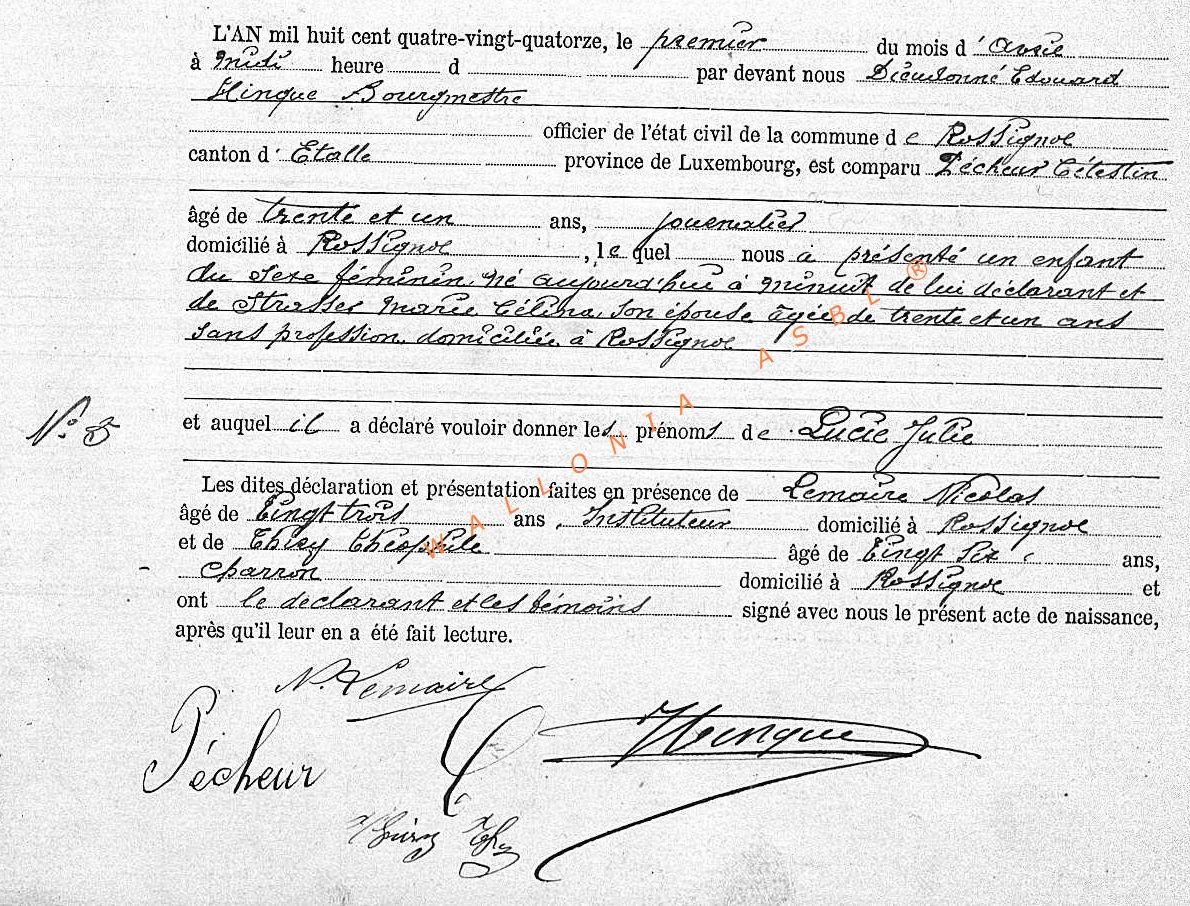 L'AN mil huit cent quatre-vingt-quatorze, le premier du mois d'avril
à midi heure d par devant nous Dieudonné Edouard
Hinque Bourgmestre
officier de l'état civil de la commune de Rossignol
canton d'Etalle province de Luxembourg, est comparu Pécheur Célestin
âgé de trente et un ans, journalier
domicilié à Rossignol, lequel nous a présenté un enfant
du sexe féminin, né aujourd'hui à minuit de lui déclarant et
de Strasser Marie Célina, son épouse âgée de trente et un ans
sans profession, domiciliée à Rossignol
N° 8
et auquel il a déclaré vouloir donner les prénoms de Lucie Julie
Les dites déclaration et présentation faites en présence de Lemaire Nicolas
âgé de vingt trois ans, Instituteur domicilié à Rossignol
et de Thiry Théophile âgé de vingt six ans,
charron domicilié à Rossignol et
ont le déclarant et les témoins signé avec nous le présent acte de naissance,
après qu'il leur en a été fait lecture.
N. Lemaire
Hinque
Pécheur
Thiry Th
WALLONIA ASBL ®